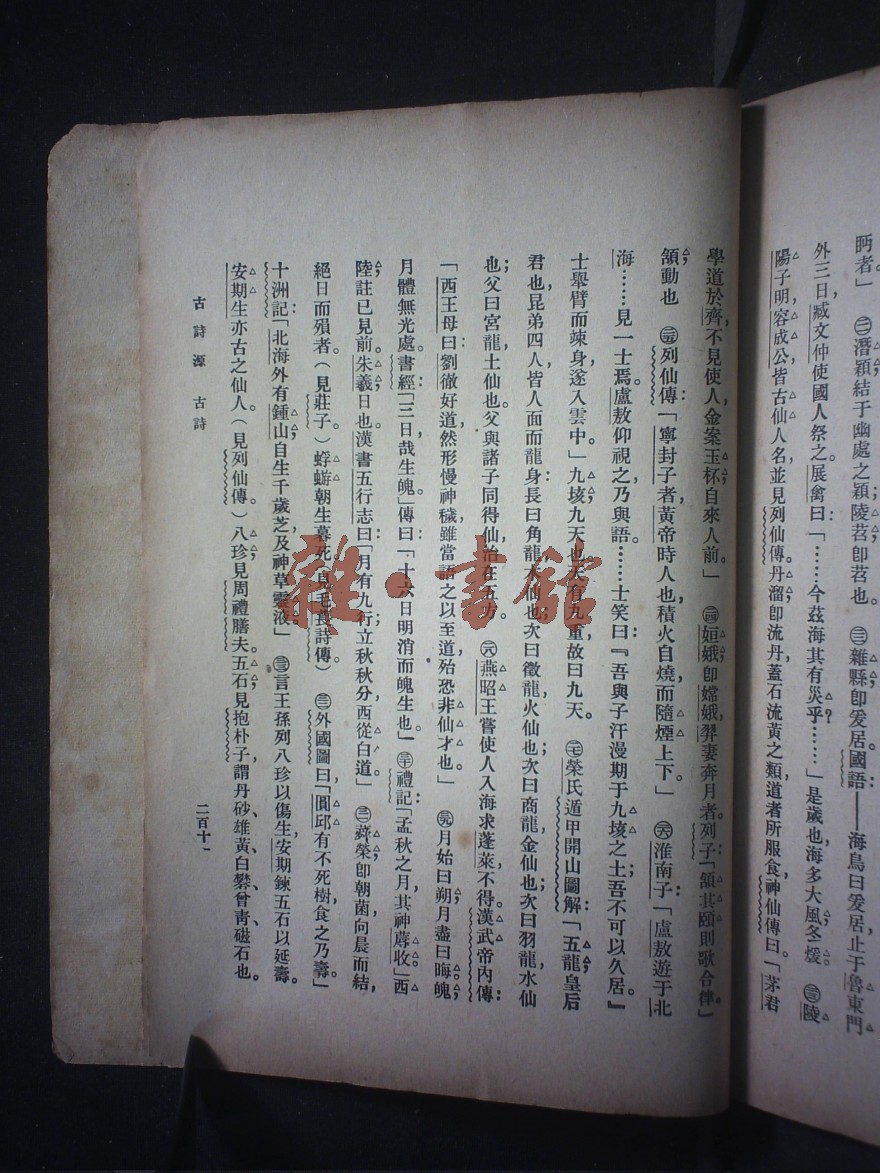 眄者。」㊂潛穎結于幽處之穎;陵苕卽苕也。㊂雜縣卽爰居;國語:——海鳥曰爰居,止于魯東門
外三日,臧文仲使國人祭之。展禽曰:「……今茲海其有災乎?……」是歲也,海多大風,冬煖。㊂陵
陽子明,容成公,皆古仙人名,並見列仙傳。丹溜卽流丹,蓋石流黃之類,道者所服食。神仙傳曰:「茅君
學道於齊,不見使人,金案玉杯,自來人前。」姮娥卽嫦娥,羿妻奔月者。列子:「頷其頤則歌合律。」
頷,動也。列仙傳:「寧封子者,黃帝時人也,積火自燒,而隨煙上下。」淮南子:「盧敖遊于北
海……見一士焉,盧敖仰視之,乃與語。……士笑曰:『吾與子汗漫期于九垓之上,吾不可以久居。』
士舉臂而竦身,遂入雲中。」九垓,九天也。天有九重,故曰九天。榮氏遁甲開山圖解:「五龍,皇后
君也,昆弟四人,皆人面而龍身。長曰角龍,木仙也;次曰徵龍,火仙也;次曰商龍,金仙也;次曰羽龍,水仙
也;父曰宮龍,土仙也。父與諸子同得仙,治在五方。燕昭王嘗使人入海求蓬萊,不得。漢武帝內傳:
「西王母曰:劉徹好道,然形慢神穢,雖當語之以至道,殆恐非仙才也。」月始曰朔,月盡曰晦。魄,
月體無光處。書經:「三日哉生魄。」傳曰:「十六日明消而魄生也。」禮記:「孟秋之月,其神蓐收。」西
陸註已見前。朱羲,日也。漢書五行志曰:「月有九行,立秋秋分,西從白道。」蕣榮卽朝菌,向晨而結,
絕日而殞者。(見莊子)蜉蝣朝生暮死(見毛萇詩傳)外國圖曰:「圓邱有不死樹,食之乃壽。」
十洲記:「北海外有鍾山,自生千歲芝及神草靈液。」言王孫列八珍以傷生,安期鍊五石以延壽。
安期生亦古之仙人。(見列仙傳)八珍見周禮膳夫。五石見抱朴子,謂丹砂、雄黃、白礬、曾青、磁石也。
古詩源 古詩
二百十一
雜·書館